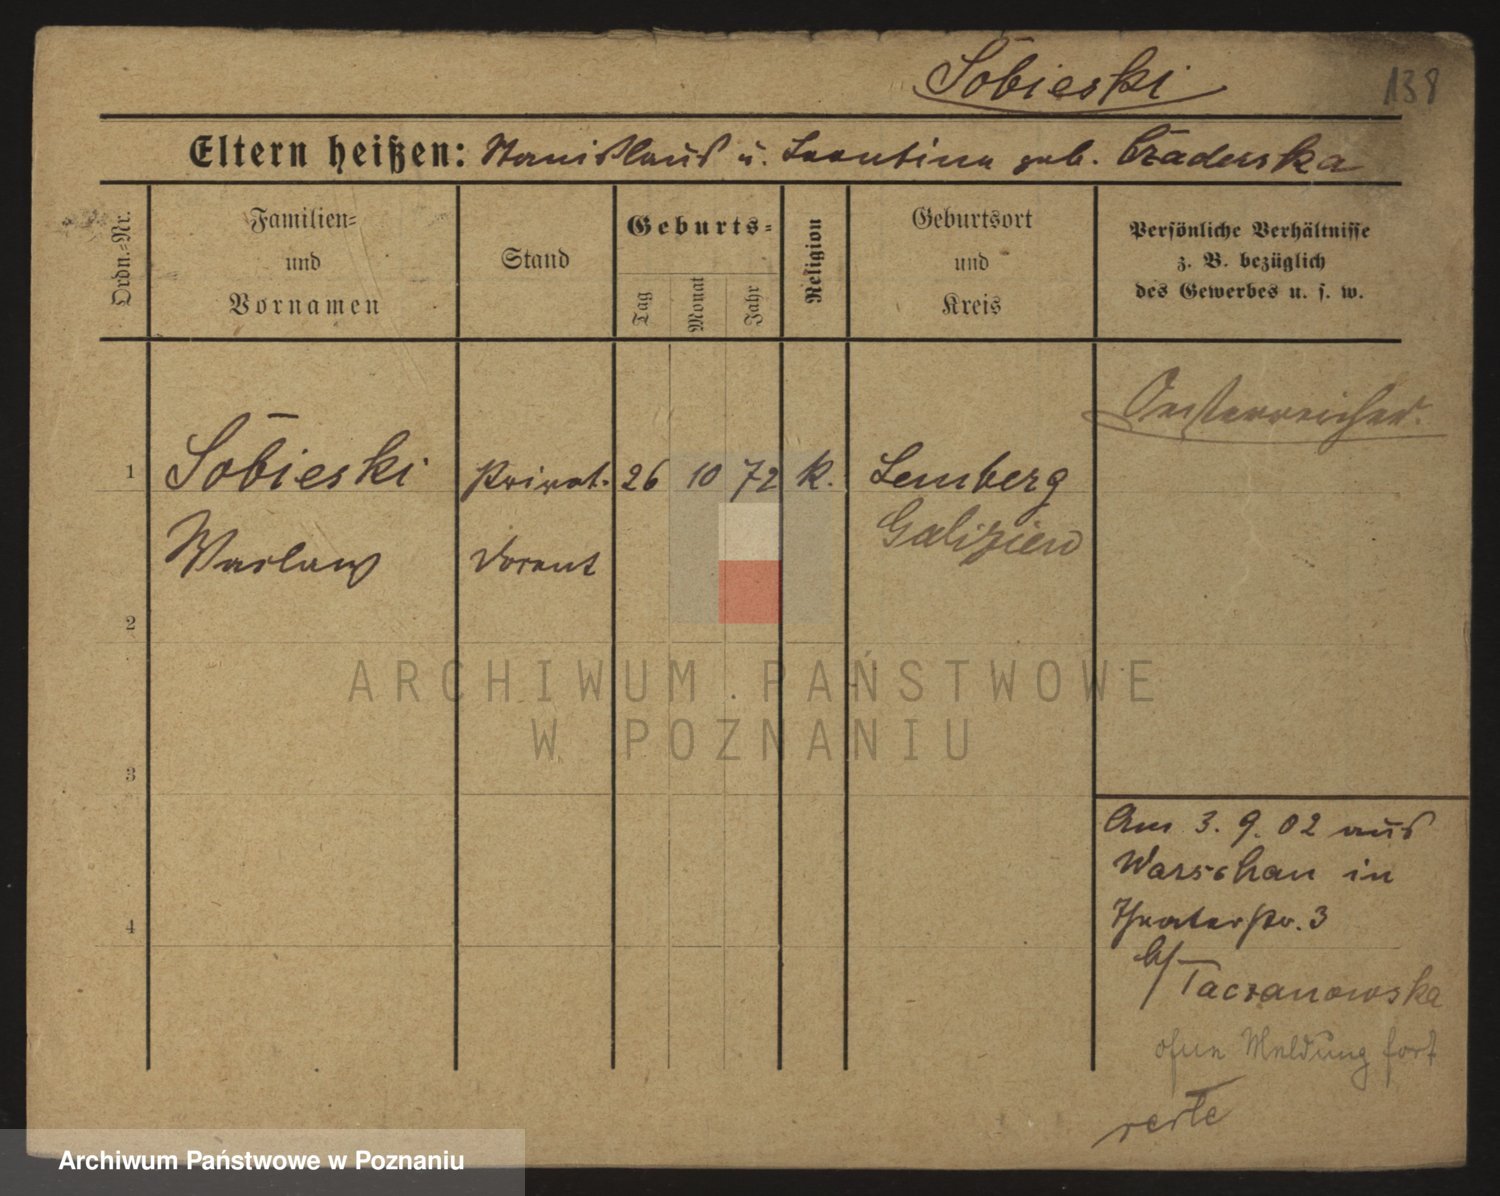 Sobieski
138
Eltern heißen: Stanislaus u. Leontina geb. Czaderska
Ordn.-Nr.
Familien-
und
Vornamen
Stand
Geburts-
Tag
Monat
Jahr
Religion
Geburtsort
und
Kreis
Persönliche Verhältnisse
z. B. bezüglich
des Gewerbes u. s. w.
Oesterreicher.
1 Sobieski Privat- 26 10 72 k. Lemberg
Galizien
Waclaw Docent
2
ARCHIWUM PAŃSTWOWE
W POZNANIU
3
Am 3. 9. 02 aus
Warschau in
4
Theaterstr. 3
b/ Taczanowska
ohne Meldung fort
Archiwum Państwowe w Poznaniu